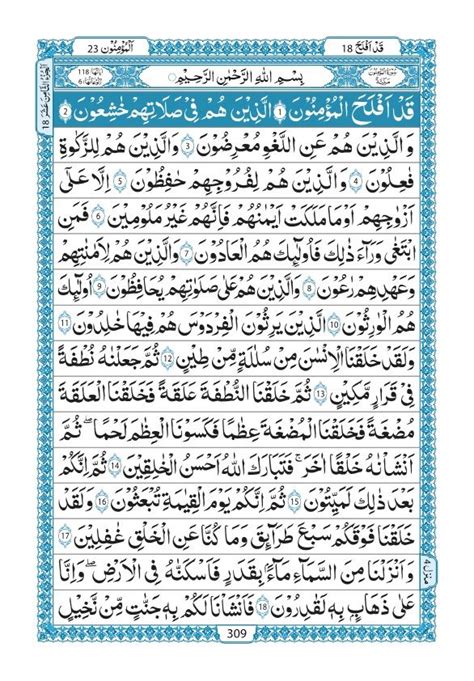 قَدْ اَفْلَحَ 18
اَلْمُؤْمِنُوْنَ 23
سُوْرَةُ الْمُؤْمِنُوْنَ مَكِّيَّةٌ
بِسْمِ اللّٰهِ الرَّحْمٰنِ الرَّحِيْمِ
اٰيَاتُهَا 118
6
قَدْ اَفْلَحَ الْمُؤْمِنُوْنَ 1 الَّذِيْنَ هُمْ فِيْ صَلَاتِهِمْ خٰشِعُوْنَ 2
وَ الَّذِيْنَ هُمْ عَنِ اللَّغْوِ مُعْرِضُوْنَ 3 وَالَّذِيْنَ هُمْ لِلزَّكٰوةِ
فٰعِلُوْنَ 4 وَالَّذِيْنَ هُمْ لِفُرُوْجِهِمْ حٰفِظُوْنَ 5 اِلَّا عَلٰٓى
اَزْوَاجِهِمْ اَوْ مَا مَلَكَتْ اَيْمَانُهُمْ فَاِنَّهُمْ غَيْرُ مَلُوْمِيْنَ 6 فَمَنِ
ابْتَغٰى وَرَآءَ ذٰلِكَ فَاُولٰٓئِكَ هُمُ الْعَادُوْنَ 7 وَالَّذِيْنَ هُمْ لِاَمٰنٰتِهِمْ
وَعَهْدِهِمْ رٰعُوْنَ 8 وَالَّذِيْنَ هُمْ عَلٰى صَلَوٰتِهِمْ يُحَافِظُوْنَ 9 اُولٰٓئِكَ
هُمُ الْوٰرِثُوْنَ 10 الَّذِيْنَ يَرِثُوْنَ الْفِرْدَوْسَ هُمْ فِيْهَا خٰلِدُوْنَ 11
وَلَقَدْ خَلَقْنَا الْاِنْسٰنَ مِنْ سُلٰلَةٍ مِّنْ طِيْنٍ 12 ثُمَّ جَعَلْنٰهُ نُطْفَةً
فِيْ قَرَارٍ مَّكِيْنٍ 13 ثُمَّ خَلَقْنَا النُّطْفَةَ عَلَقَةً فَخَلَقْنَا الْعَلَقَةَ
مُضْغَةً فَخَلَقْنَا الْمُضْغَةَ عِظٰمًا فَكَسَوْنَا الْعِظٰمَ لَحْمًا ۗ ثُمَّ
اَنْشَاْنٰهُ خَلْقًا اٰخَرَ ۚ فَتَبَارَكَ اللّٰهُ اَحْسَنُ الْخٰلِقِيْنَ 14 ثُمَّ اِنَّكُمْ
بَعْدَ ذٰلِكَ لَمَيِّتُوْنَ 15 ثُمَّ اِنَّكُمْ يَوْمَ الْقِيٰمَةِ تُبْعَثُوْنَ 16 وَلَقَدْ
خَلَقْنَا فَوْقَكُمْ سَبْعَ طَرَآئِقَ وَمَا كُنَّا عَنِ الْخَلْقِ غٰفِلِيْنَ 17
وَاَنْزَلْنَا مِنَ السَّمَآءِ مَآءً بِقَدَرٍ فَاَسْكَنّٰهُ فِي الْاَرْضِ ۖ وَاِنَّا
عَلٰى ذَهَابٍ بِهٖ لَقٰدِرُوْنَ 18 فَاَنْشَاْنَا لَكُمْ بِهٖ جَنّٰتٍ مِّنْ نَّخِيْلٍ
309
اَلْجُزْءُ الثَّامِنَ عَشَرَ 18
منزل 4